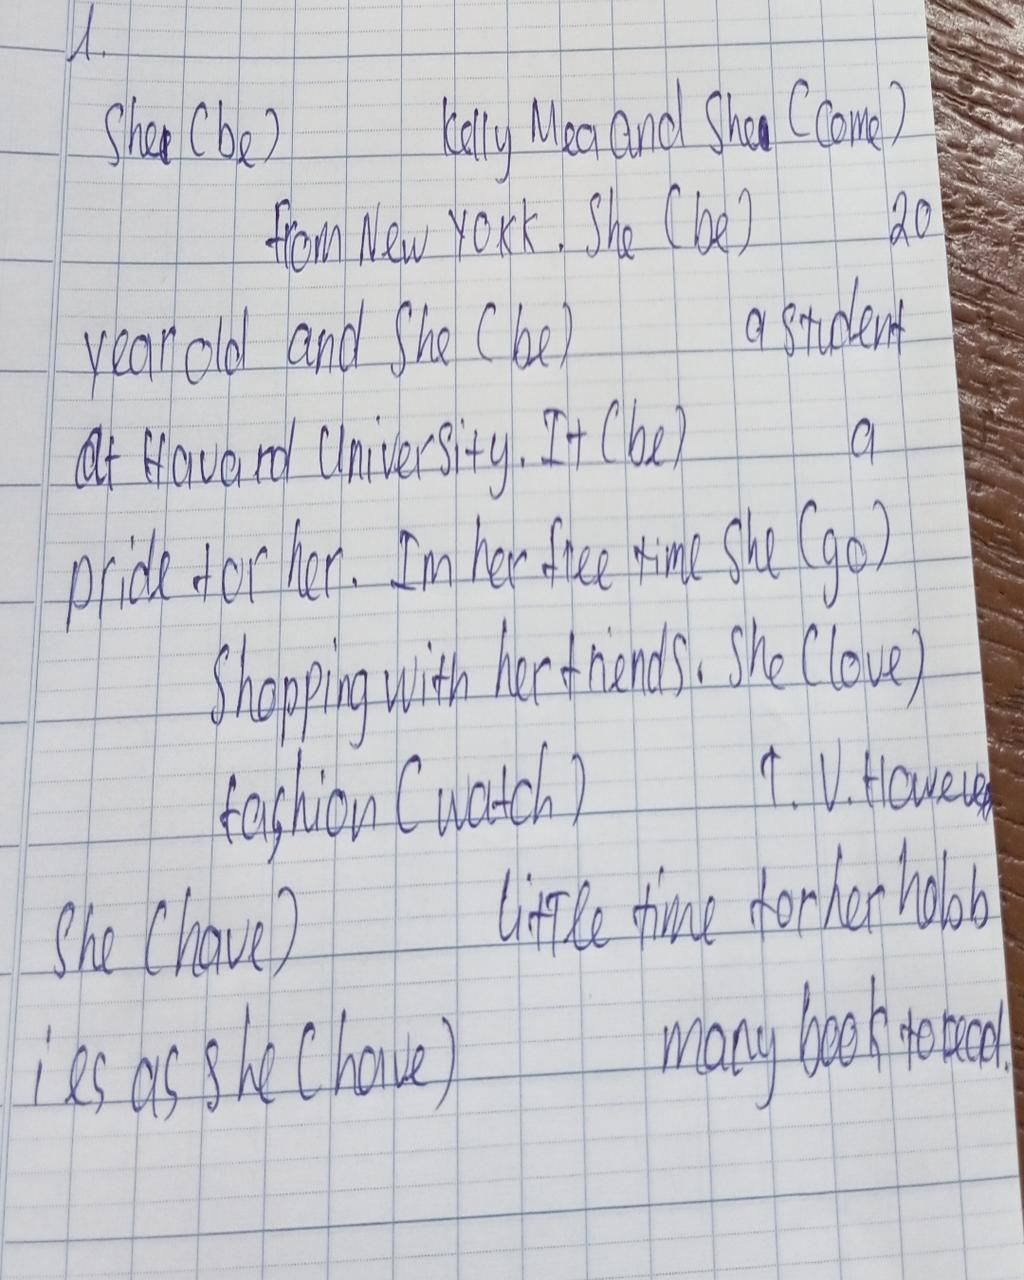 1.
She (be) Kelly Mea and She (come)
from New York. She (be) 20
year old and She (be) a student
at Havard University. It (be) a
pride for her. Im her free time She (go)
Shopping with her friends. She (love)
fashion (watch) T. V. However
She (have) little time for her hobb
ies as She (have) many book to read.